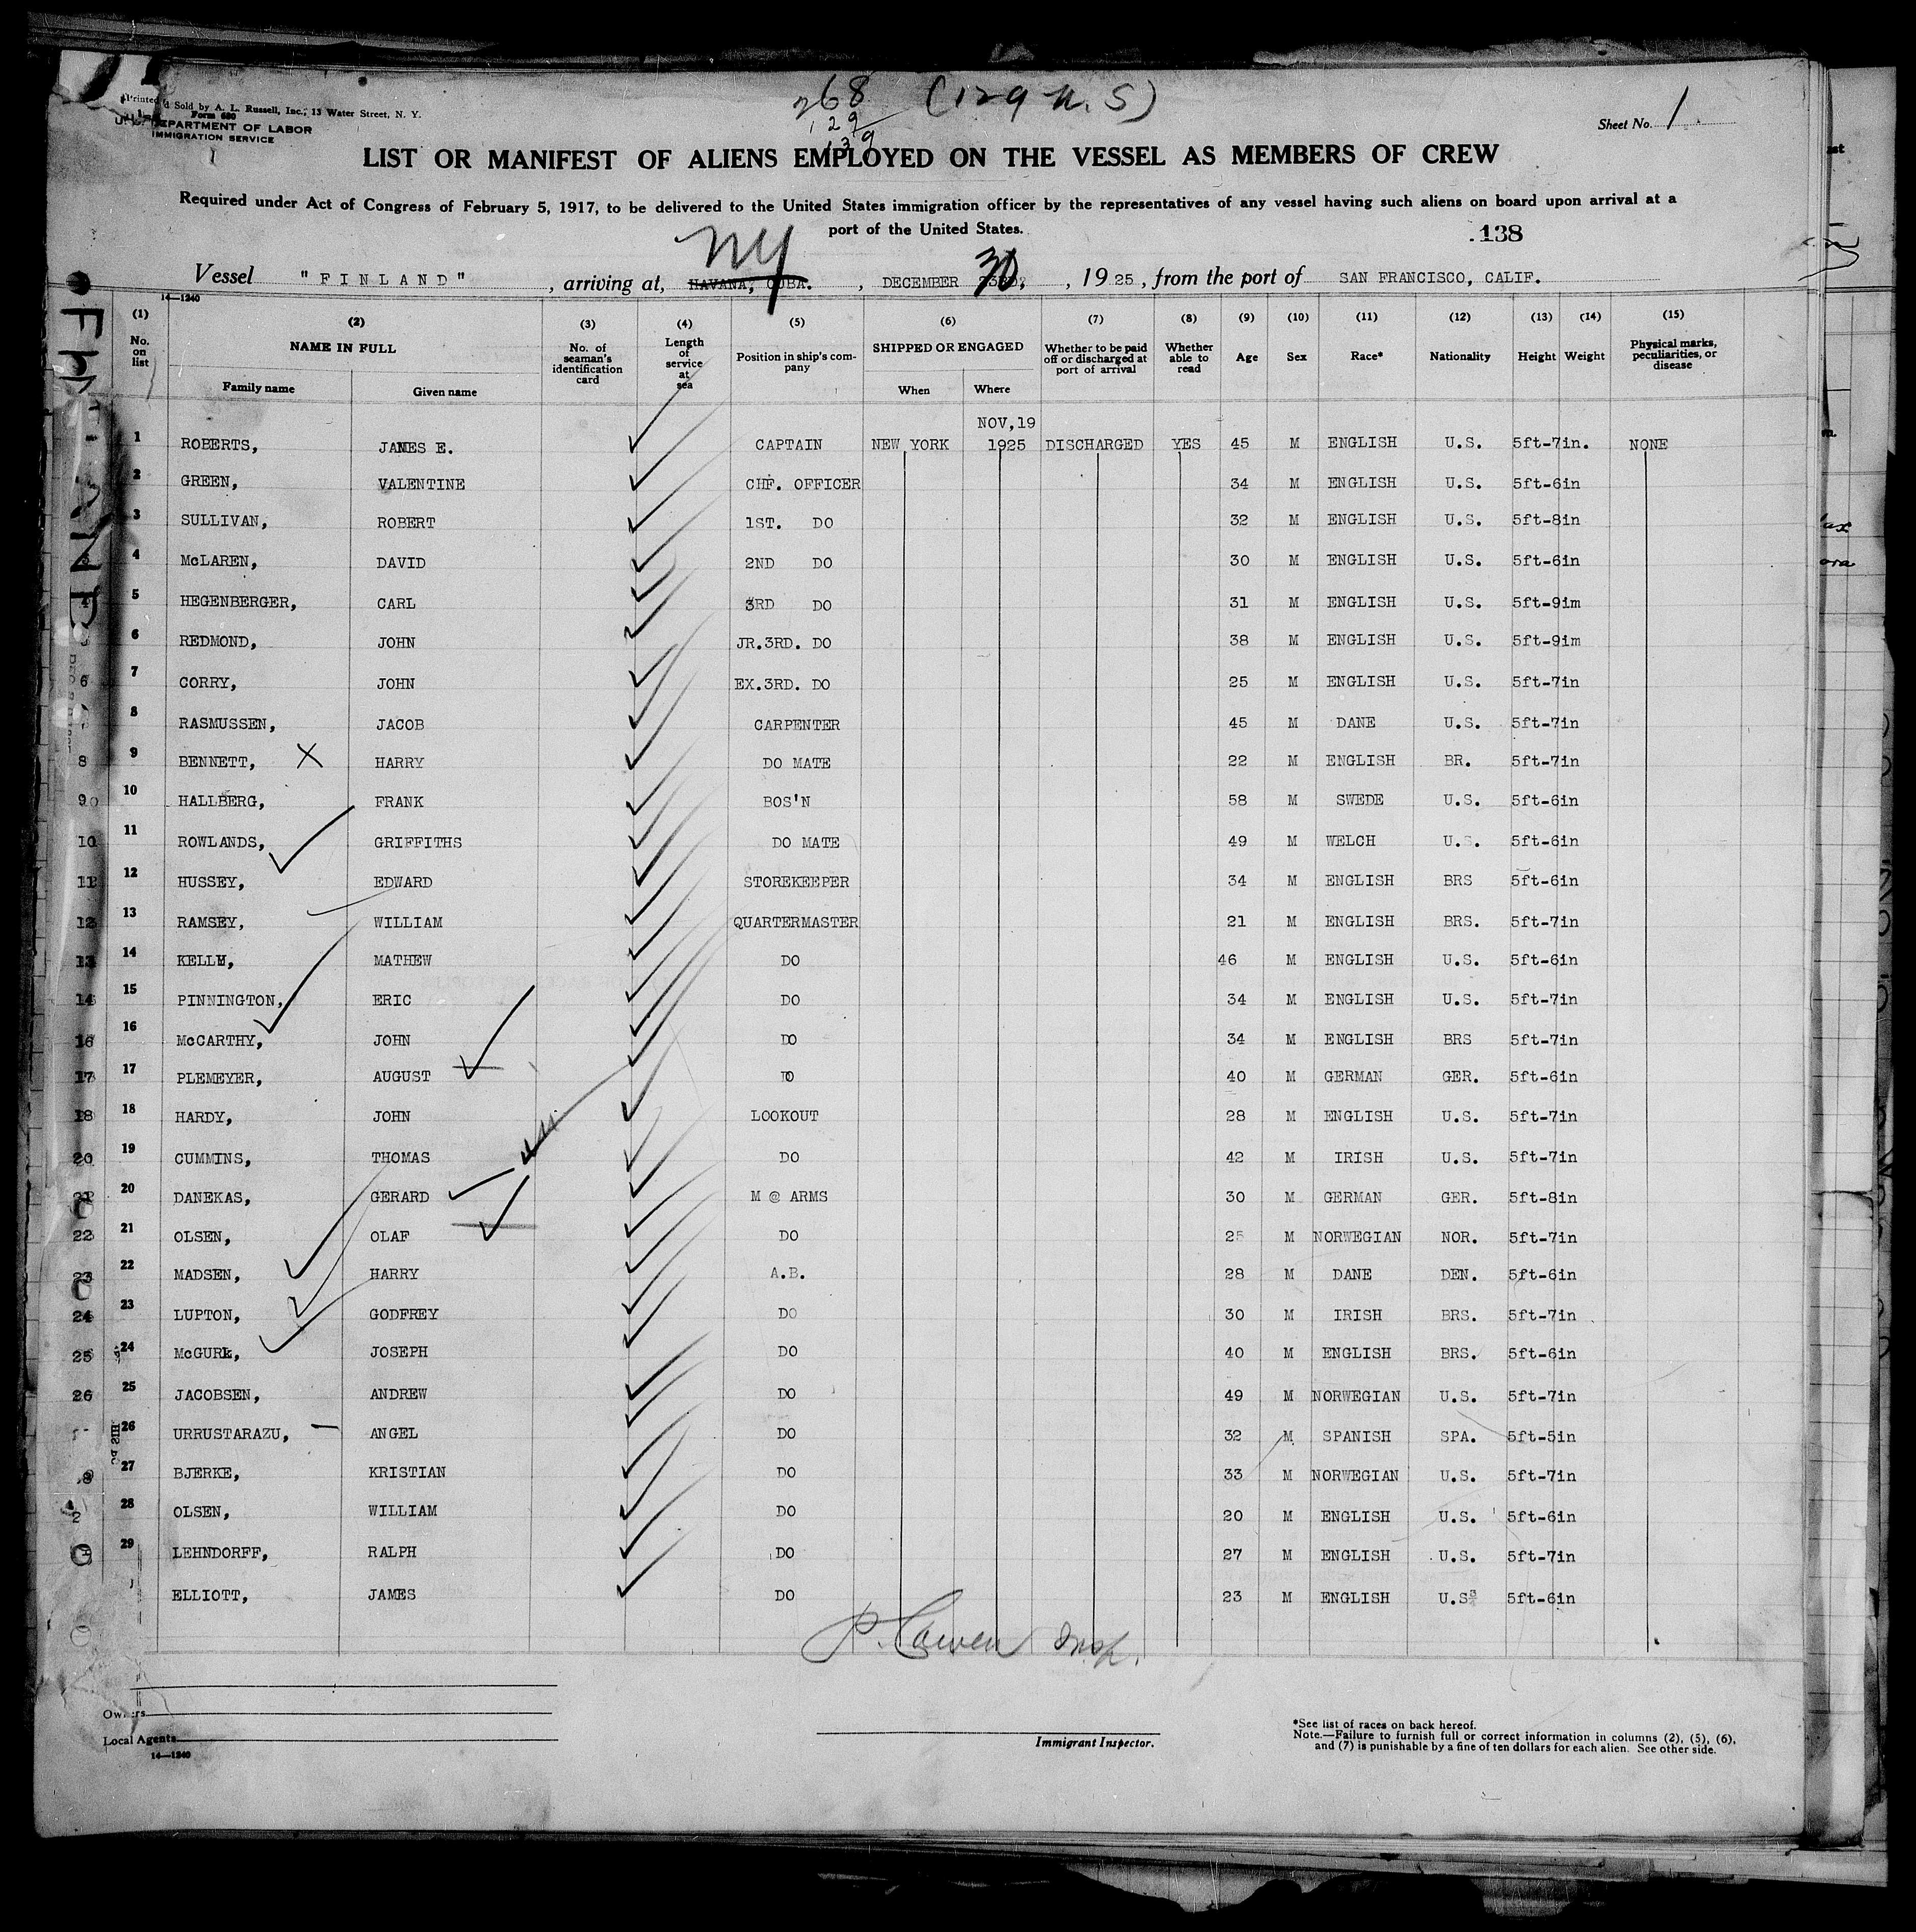 268 (129 U.S)
129
139
Printed & Sold by A. L. Russell, Inc., 13 Water Street, N. Y.
Form 680
DEPARTMENT OF LABOR
IMMIGRATION SERVICE
Sheet No. 1
LIST OR MANIFEST OF ALIENS EMPLOYED ON THE VESSEL AS MEMBERS OF CREW
Required under Act of Congress of February 5, 1917, to be delivered to the United States immigration officer by the representatives of any vessel having such aliens on board upon arrival at a
port of the United States.
138
NY
Vessel "FINLAND", arriving at, HAVANA, CUBA., DECEMBER 30, 1925, from the port of SAN FRANCISCO, CALIF.
14—1240
(1) No. on list (2) NAME IN FULL Family name Given name (3) No. of seaman's identification card (4) Length of service at sea (5) Position in ship's company (6) SHIPPED OR ENGAGED When Where (7) Whether to be paid off or discharged at port of arrival (8) Whether able to read (9) Age (10) Sex (11) Race* (12) Nationality (13) Height (14) Weight (15) Physical marks, peculiarities, or disease
NOV,19
1 ROBERTS, JAMES E. CAPTAIN NEW YORK 1925 DISCHARGED YES 45 M ENGLISH U.S. 5ft-7in. NONE
2 GREEN, VALENTINE CHF. OFFICER 34 M ENGLISH U.S. 5ft-6in
3 SULLIVAN, ROBERT 1ST. DO 32 M ENGLISH U.S. 5ft-8in
4 McLAREN, DAVID 2ND DO 30 M ENGLISH U.S. 5ft-6in
5 HEGENBERGER, CARL 3RD DO 31 M ENGLISH U.S. 5ft-9im
6 REDMOND, JOHN JR.3RD. DO 38 M ENGLISH U.S. 5ft-9im
7 CORRY, JOHN EX.3RD. DO 25 M ENGLISH U.S. 5ft-7in
8 RASMUSSEN, JACOB CARPENTER 45 M DANE U.S. 5ft-7in
9 BENNETT, X HARRY DO MATE 22 M ENGLISH BR. 5ft-7in
10 HALLBERG, FRANK BOS'N 58 M SWEDE U.S. 5ft-6in
11 ROWLANDS, GRIFFITHS DO MATE 49 M WELCH U.S. 5ft-6in
12 HUSSEY, EDWARD STOREKEEPER 34 M ENGLISH BRS 5ft-6in
13 RAMSEY, WILLIAM QUARTERMASTER 21 M ENGLISH BRS. 5ft-7in
14 KELLY, MATHEW DO 46 M ENGLISH U.S. 5ft-6in
15 PINNINGTON, ERIC DO 34 M ENGLISH U.S. 5ft-7in
16 McCARTHY, JOHN DO 34 M ENGLISH BRS 5ft-7in
17 PLEMEYER, AUGUST DO 40 M GERMAN GER. 5ft-6in
18 HARDY, JOHN LOOKOUT 28 M ENGLISH U.S. 5ft-7in
19 CUMMINS, THOMAS DO 42 M IRISH U.S. 5ft-7in
20 DANEKAS, GERARD M @ ARMS 30 M GERMAN GER. 5ft-8in
21 OLSEN, OLAF DO 25 M NORWEGIAN NOR. 5ft-7in
22 MADSEN, HARRY A.B. 28 M DANE DEN. 5ft-6in
23 LUPTON, GODFREY DO 30 M IRISH BRS. 5ft-7in
24 McGURK, JOSEPH DO 40 M ENGLISH BRS. 5ft-6in
25 JACOBSEN, ANDREW DO 49 M NORWEGIAN U.S. 5ft-7in
26 URRUSTARAZU, ANGEL DO 32 M SPANISH SPA. 5ft-5in
27 BJERKE, KRISTIAN DO 33 M NORWEGIAN U.S. 5ft-7in
28 OLSEN, WILLIAM DO 20 M ENGLISH U.S. 5ft-6in
29 LEHNDORFF, RALPH DO 27 M ENGLISH U.S. 5ft-7in
ELLIOTT, JAMES DO 23 M ENGLISH U.S 5ft-6in
P. Cowen Insp.
Owners
Local Agents
14—1240
Immigrant Inspector.
*See list of races on back hereof.
Note.—Failure to furnish full or correct information in columns (2), (5), (6),
and (7) is punishable by a fine of ten dollars for each alien. See other side.
FINLAND